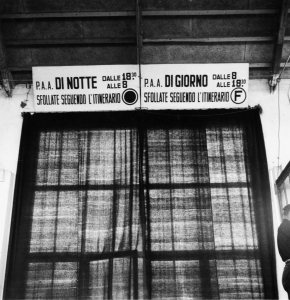 P.A.A. DI NOTTE DALLE 18³⁰ ALLE 8
SFOLLATE SEGUENDO L'ITINERARIO
P.A.A. DI GIORNO DALLE 8 ALLE 18³⁰
SFOLLATE SEGUENDO L'ITINERARIO F